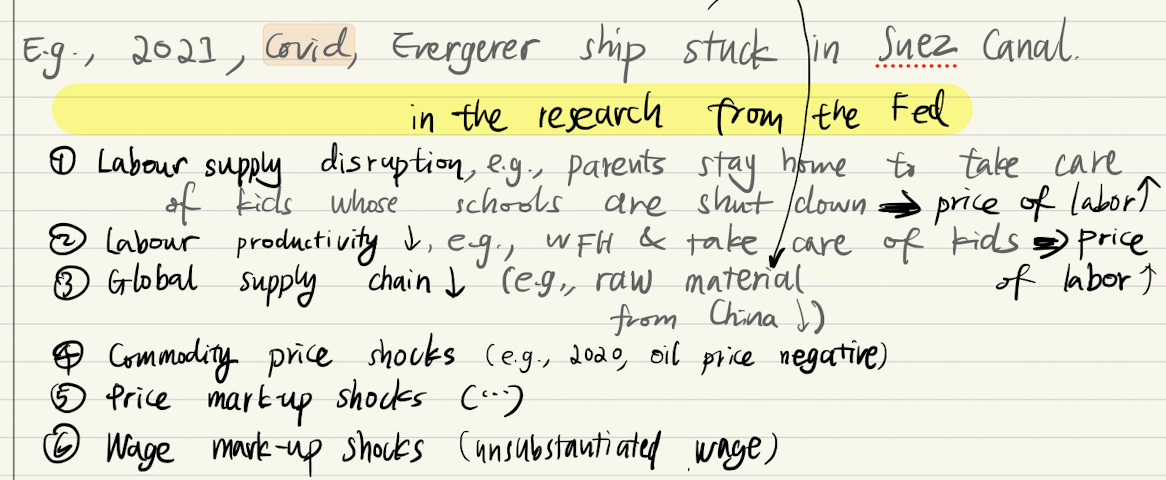 E.g., 2021, Covid, Evergerer ship stuck in Suez Canal.
in the research from the Fed
① Labour supply disruption, e.g., parents stay home to take care
of kids whose schools are shut down ➡ price of labor ↑
② Labour productivity ↓, e.g., WFH & take care of kids ⇒ price
③ Global supply chain ↓ (e.g., raw material of labor ↑
from China ↓)
④ Commodity price shocks (e.g., 2020, oil price negative)
⑤ Price mark-up shocks (...)
⑥ Wage mark-up shocks (unsubstantiated wage)